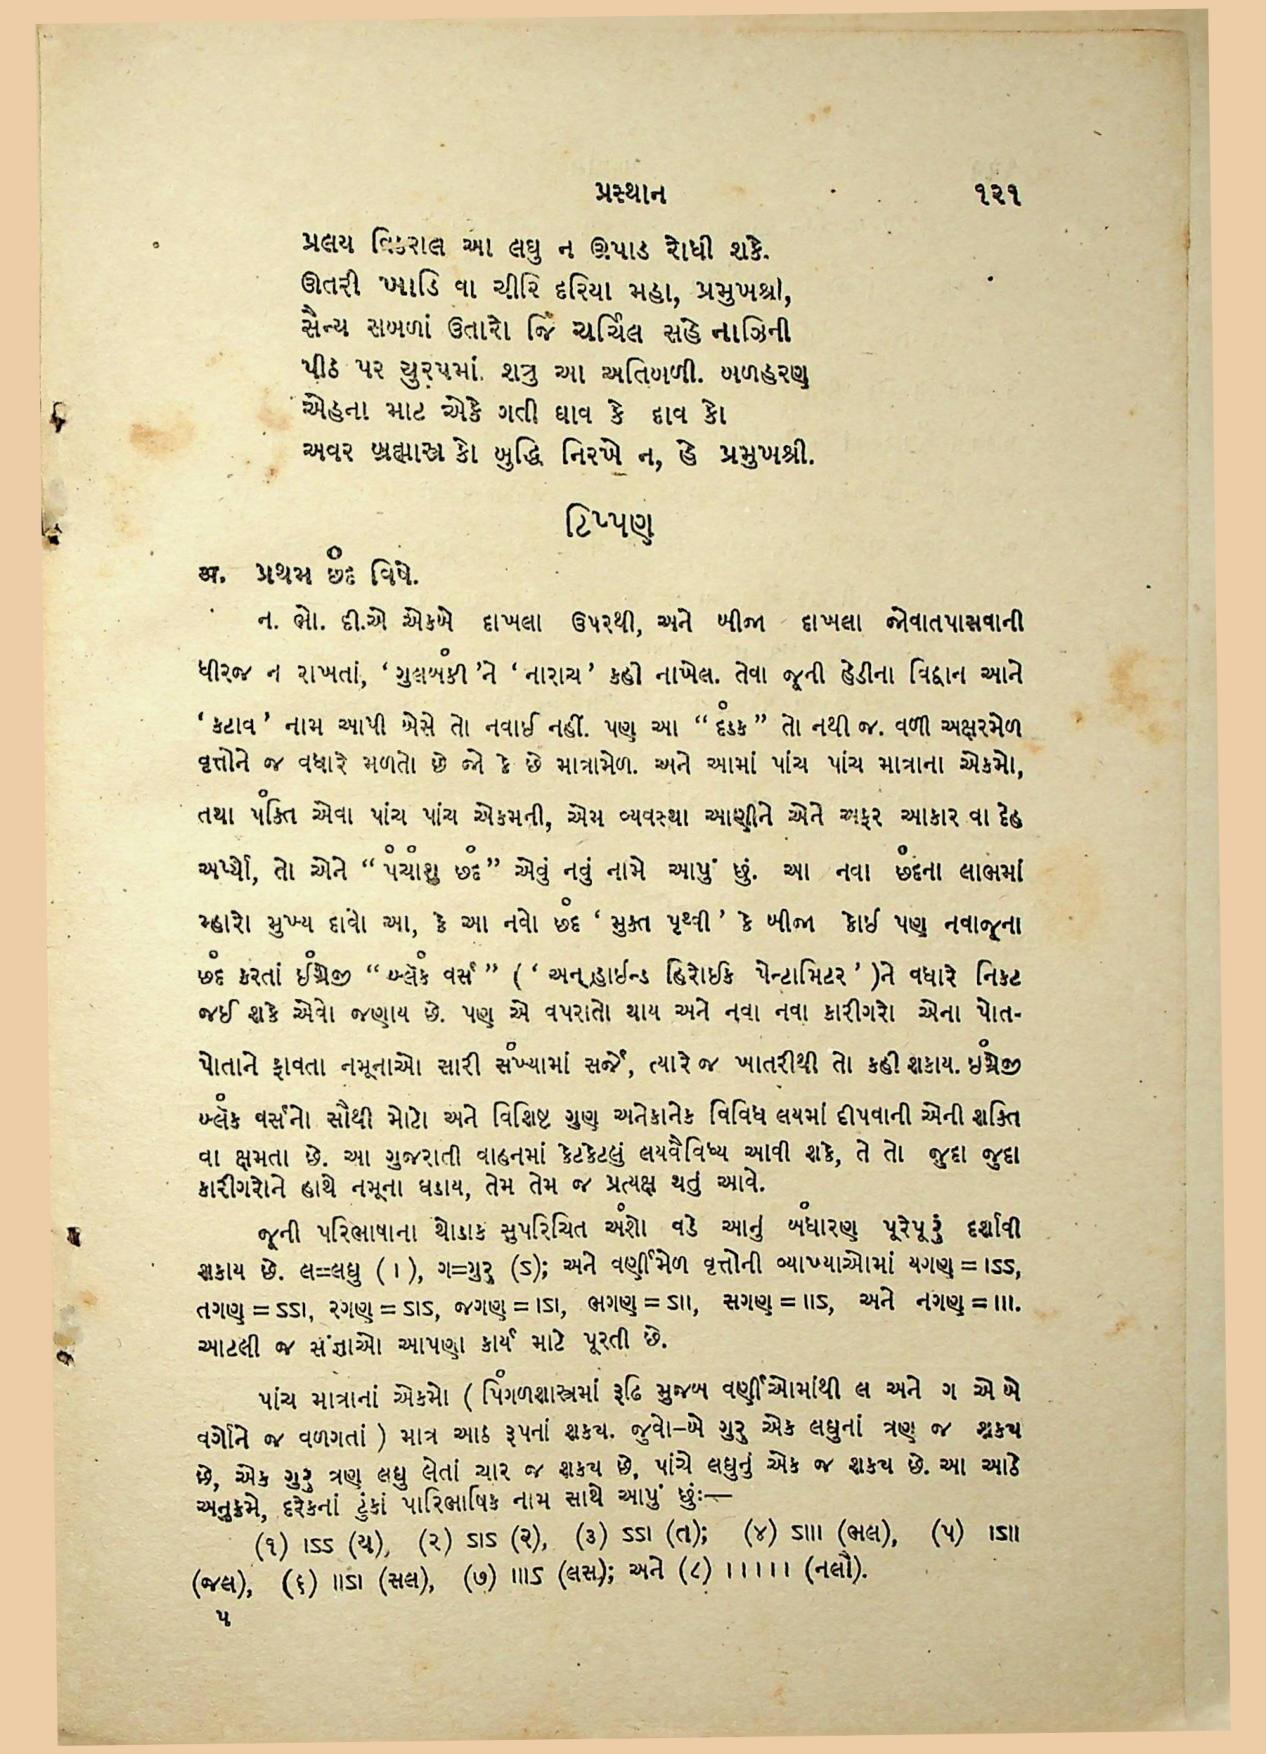 પ્રસ્થાન ૧૨૧
પ્રલય વિકરાલ આ લઘુ ન ઊપાડ રોધી શકે.
ઊતરી ખાડિ વા ચીરિ દરિયા મહા, પ્રમુખશ્રી,
સૈન્ય સબળાં ઉતારો જિં ચર્ચિલ સહે નાઝિની
પીઠ પર યુરપમાં. શત્રુ આ અતિબળી. બળહરણ
એહના માટ એકે ગતી ઘાવ કે દાવ કો
અવર બ્રહ્માસ્ત્ર કો બુદ્ધિ નિરખે ન, હે પ્રમુખશ્રી.
ટિપ્પણ
અ. પ્રથમ છંદ વિષે.
ન. ભો. દી.એ એકબે દાખલા ઉપરથી, અને બીજા દાખલા જોવાતપાસવાની
ધીરજ ન રાખતાં, ‘ગુલબંકી’ને ‘નારાચ’ કહી નાખેલ. તેવા જૂની હેડીના વિદ્વાન આને
‘કટાવ’ નામ આપી બેસે તો નવાઈ નહીં. પણ આ “દંડક” તો નથી જ. વળી અક્ષરમેળ
વૃત્તોને જ વધારે મળતો છે જો કે છે માત્રામેળ. અને આમાં પાંચ પાંચ માત્રાના એકમો,
તથા પંક્તિ એવા પાંચ પાંચ એકમની, એમ વ્યવસ્થા આણીને એને અફર આકાર વા દેહ
અર્પ્યો, તો એને “પંચાંશુ છંદ” એવું નવું નામે આપું છું. આ નવા છંદના લાભમાં
મ્હારો મુખ્ય દાવો આ, કે આ નવો છંદ ‘મુક્ત પૃથ્વી’ કે બીજા કોઈ પણ નવાજૂના
છંદ કરતાં ઈંગ્રેજી “બ્લૅંક વર્સ” (‘અન્‌હ્રાઈન્ડ હિરોઈક પેન્ટામિટર’)ને વધારે નિકટ
જઈ શકે એવો જણાય છે. પણ એ વપરાતો થાય અને નવા નવા કારીગરો એના પોત-
પોતાને ફાવતા નમૂનાઓ સારી સંખ્યામાં સર્જે, ત્યારે જ ખાતરીથી તો કહી શકાય. ઇંગ્રેજી
બ્લૅંક વર્સનો સૌથી મોટો અને વિશિષ્ટ ગુણ અનેકાનેક વિવિધ લયમાં દીપવાની એની શક્તિ
વા ક્ષમતા છે. આ ગુજરાતી વાહનમાં કેટકેટલું લયવૈવિધ્ય આવી શકે, તે તો જુદા જુદા
કારીગરોને હાથે નમૂના ઘડાય, તેમ તેમ જ પ્રત્યક્ષ થતું આવે.
જૂની પરિભાષાના થોડાક સુપરિચિત અંશો વડે આનું બંધારણ પૂરેપૂરું દર્શાવી
શકાય છે. લ=લઘુ (।), ગ=ગુરુ (ઽ); અને વર્ણમેળ વૃત્તોની વ્યાખ્યાઓમાં યગણ = ।ઽઽ,
તગણ = ઽઽ।, રગણ = ઽ।ઽ, જગણ = ।ઽ।, ભગણ = ઽ।।, સગણ = ।।ઽ, અને નગણ = ।।।.
આટલી જ સંજ્ઞાઓ આપણા કાર્ય માટે પૂરતી છે.
પાંચ માત્રાનાં એકમો (પિંગળશાસ્ત્રમાં રૂઢિ મુજબ વર્ણોઓમાંથી લ અને ગ એ બે
વર્ગોને જ વળગતાં) માત્ર આઠ રૂપનાં શક્ય. જુવો–બે ગુરુ એક લઘુનાં ત્રણ જ શક્ય
છે, એક ગુરુ ત્રણ લઘુ લેતાં ચાર જ શક્ય છે, પાંચે લઘુનું એક જ શક્ય છે. આ આઠે
અનુક્રમે, દરેકનાં ટુંકાં પારિભાષિક નામ સાથે આપું છુંઃ—
(૧) ।ઽઽ (ય), (૨) ઽ।ઽ (ર), (૩) ઽઽ। (ત); (૪) ઽ।।। (ભલ), (૫) ।ઽ।।
(જલ), (૬) ।।ઽ। (સલ), (૭) ।।।ઽ (લસ); અને (૮) ।।।।। (નલૌ).
૫